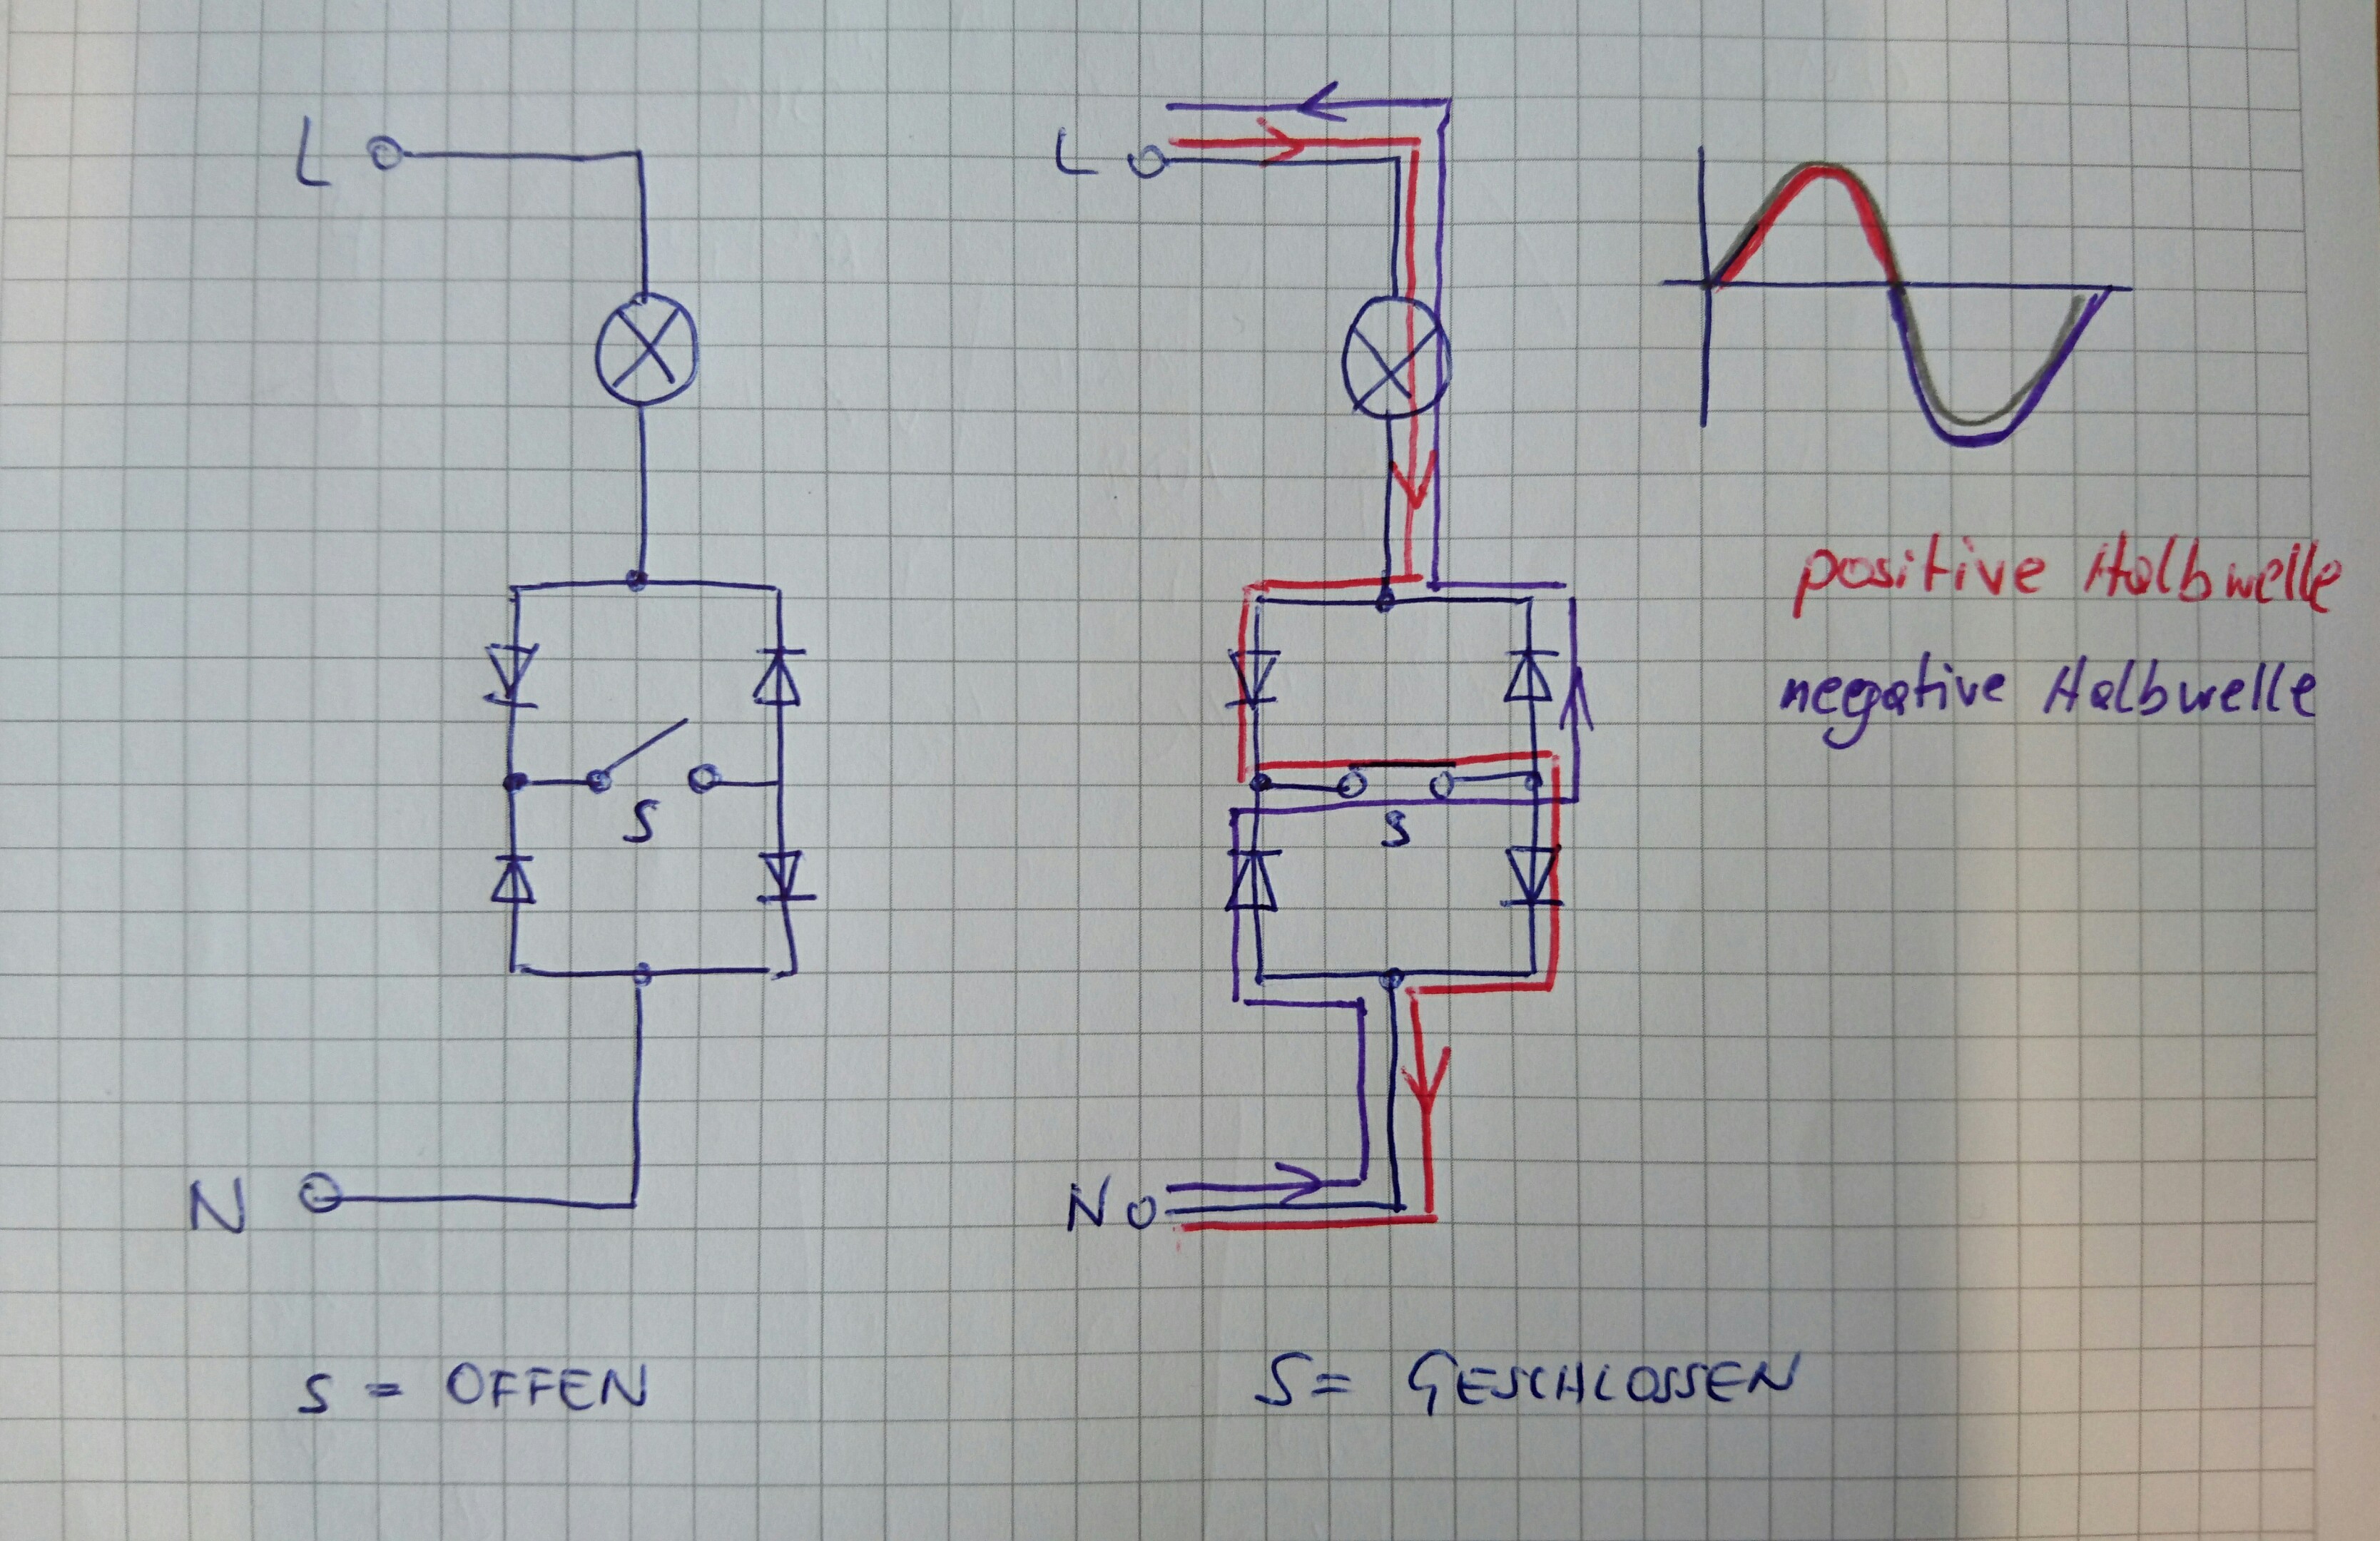 L
S
N
S = OFFEN
L
S
N
S = GESCHLOSSEN
positive Halbwelle
negative Halbwelle